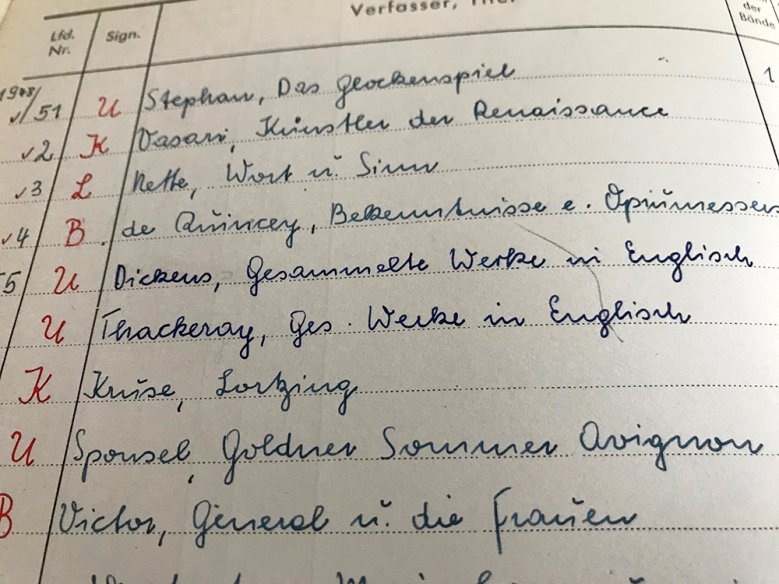 Verfasser,
der
Bände
Lfd. Nr. Sign.
/51 U Stephan, Das Glockenspiel 1
2 K Vasari, Künstler der Renaissance
3 L Nette, Wort u. Sinn
4 B de Quincey, Bekenntnisse e. Opiumessers
5 U Dickens, Gesammelte Werke in Englisch
U Thackeray, Ges. Werke in Englisch
K Kruse, Lortzing
U Sponsel, Goldner Sommer Avignon
B Victor, General u. die Frauen